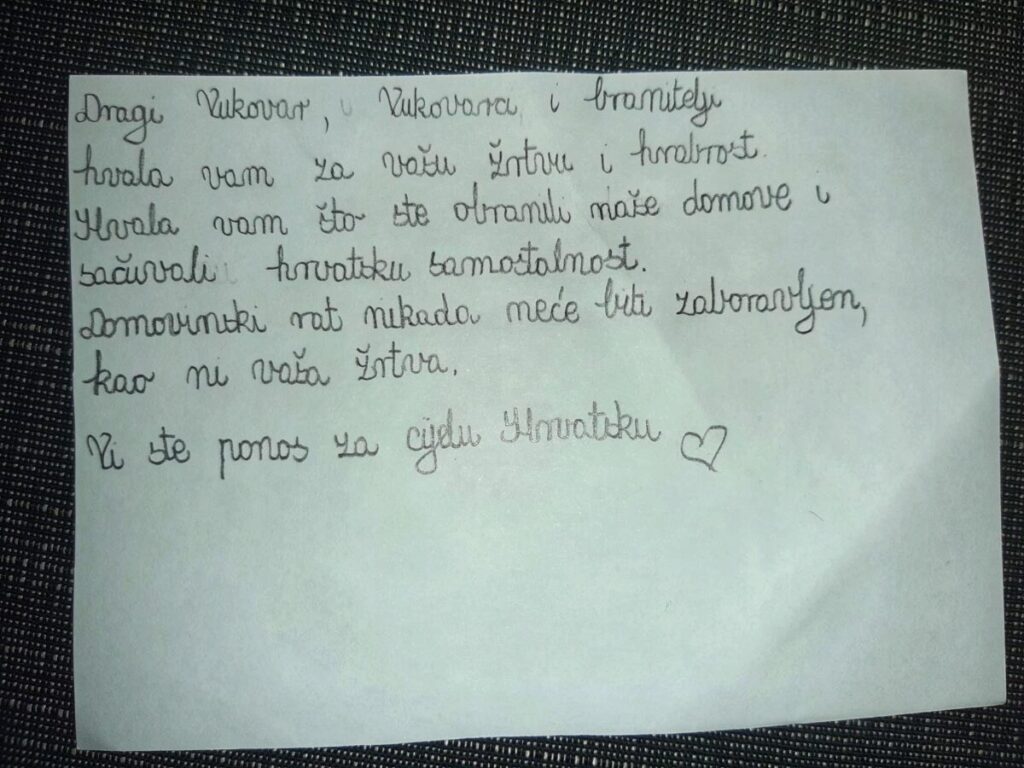 Dragi Vukovar, Vukovara i branitelji
hvala vam za vašu žrtvu i hrabrost.
Hvala vam što ste obranili naše domove i
sačuvali hrvatsku samostalnost.
Domovinski rat nikada neće biti zaboravljen,
kao ni vaša žrtva.
Vi ste ponos za cijelu Hrvatsku